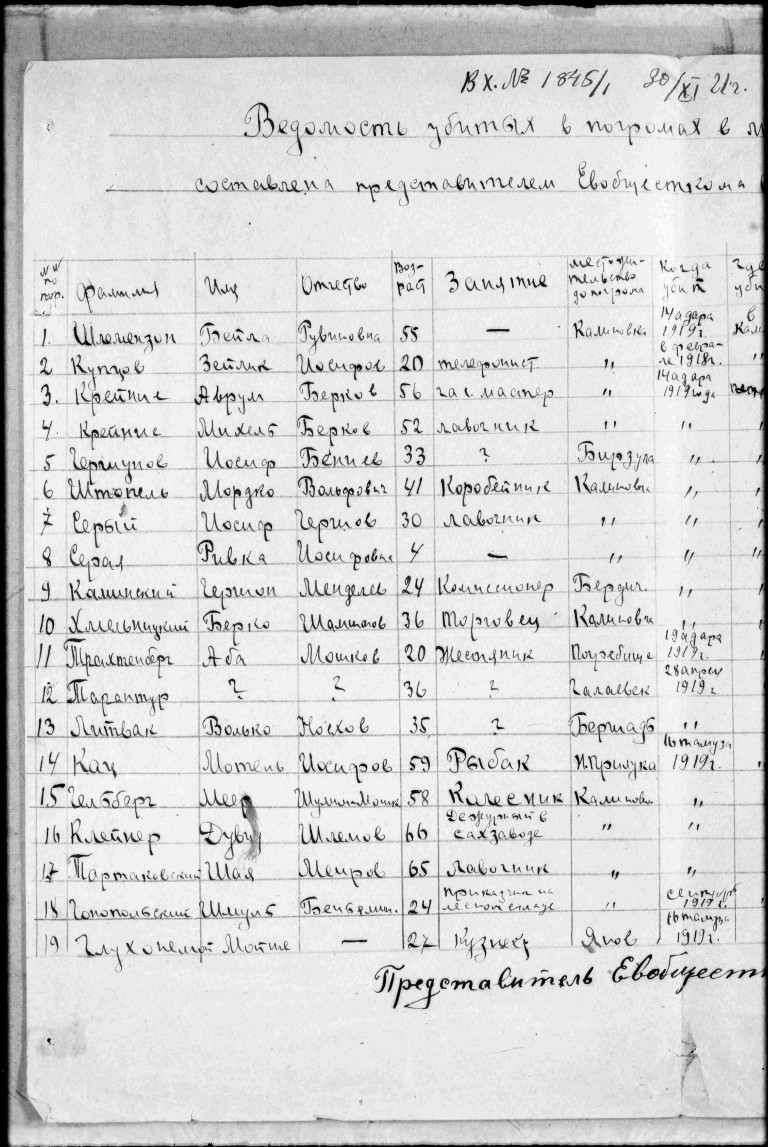 Вх. № 1845/1 30/XI 21г.
Ведомость убитых в погромах в
составлена представителем Евобщесткома
№№ по пор. Фамилия Имя Отчество Воз-раст Занятие местожи-тельство до погрома Когда убит Где уби
1. Шломензон Бейла Рувиновна 55 — Калиновка 14 адара 1919г. в Кали
2 Купцов Зейлик Иосифов 20 телефонист " в февра-ле 1918г. "
3. Крейнис Аврум Берков 56 час. мастер " 14 адара 1919 года
4. Крейнис Михель Берков 52 лавочник " " "
5 Гершунов Иосиф Бениев 33 ? Бирзула " "
6 Штопель Мордко Вольфович 41 Коробейник Калиновка " "
7 Серый Иосиф Гершов 30 лавочник " " "
8 Серая Ривка Иосифовна 4 — " " "
9 Каминский Гершон Менделев 24 Комиссионер Бердич. " "
10 Хмельницкий Берко Шамшонов 36 Торговец Калиновка " "
11 Трахтенберг Аба Мошков 20 Жестяник Погребище 19 адара 1919г. "
12 Тарантур ? ? 36 ? 28 апрел 1919г
13 Литвак Волько Нохов 35 ? Бершадь "
14 Кац Мотель Иосифов 59 Рыбак Н.Прилука 16 тамуза 1919г. "
15 Гельберг Меер 58 Колесник Калиновка "
16 Клейнер Шлемов 66 Дежурный в сахзаводе " "
17 Тартаковский Шая Меиров 65 Лавочник " "
18 Гонопольский Шмуль Беньямин. 24 Приказчик на лесном складе " сентябрь 1919г. "
19 Глухонемой Мойше — 27 Кузнец Янов 16 тамуза 1919г.
Представитель Евобщест